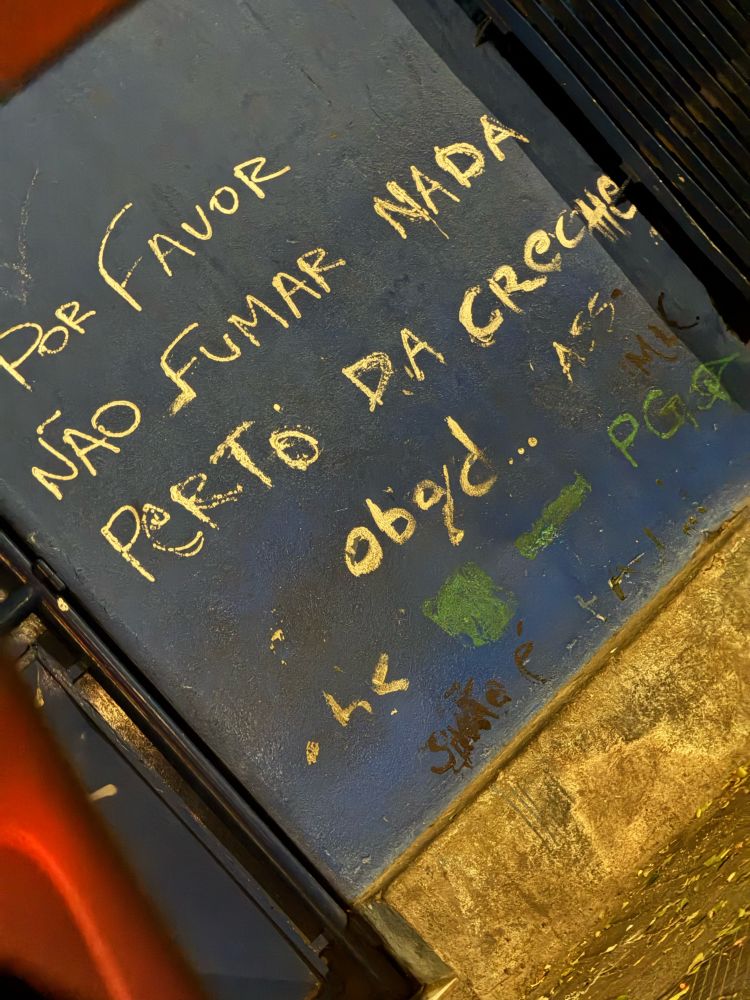 POR FAVOR
NÃO FUMAR NADA
PERTO DA CRECHE
obgd...
ASS
PGA